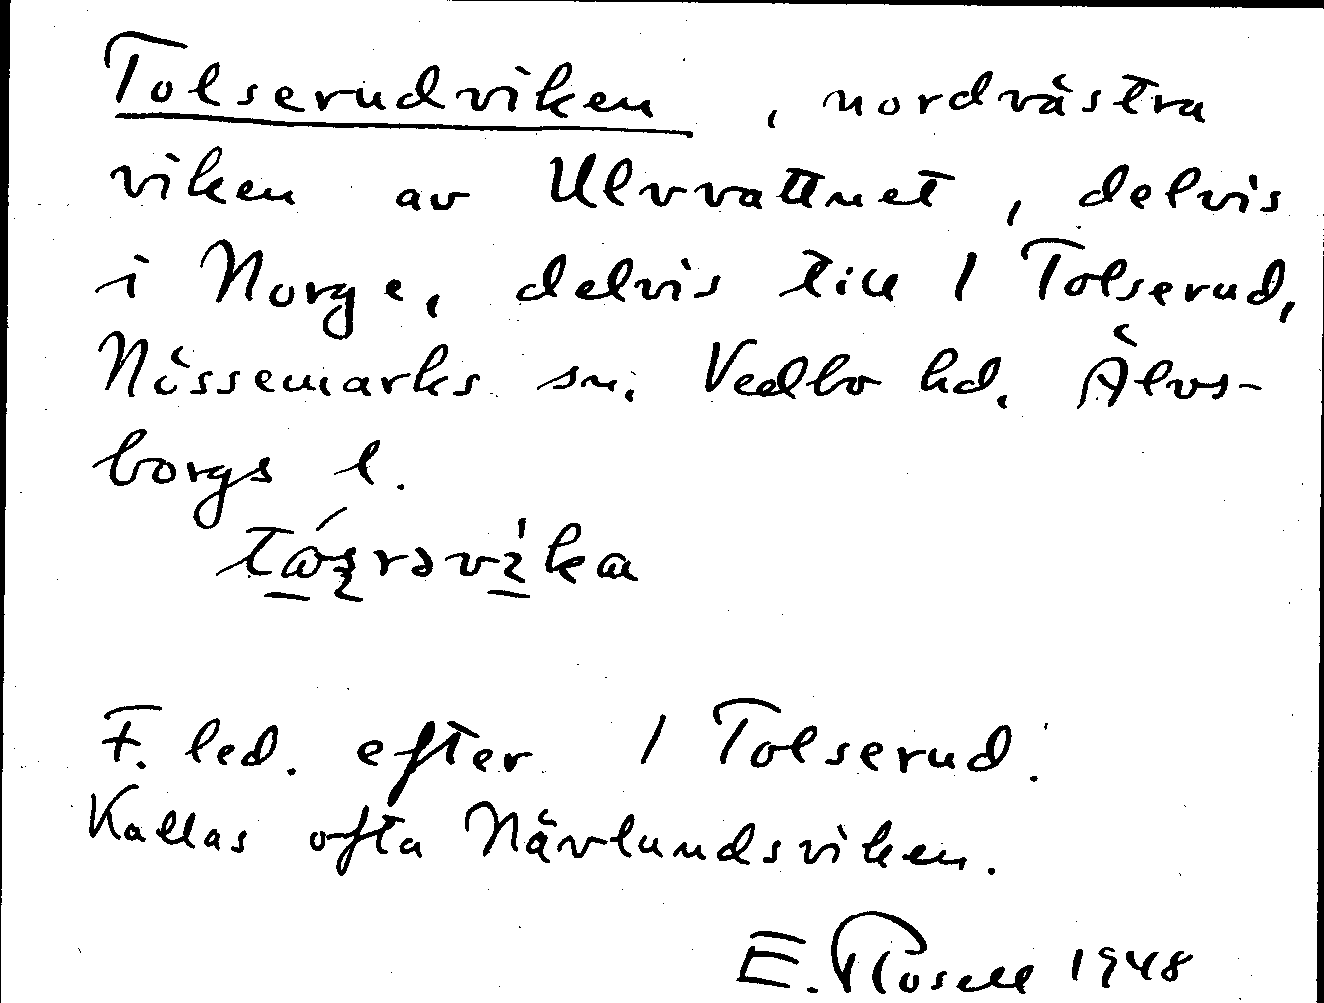 Tolserudviken, nordvästra
viken av Ulvvattnet, delvis
i Norge, delvis till 1 Tolserud,
Nössemarks sn. Vedbo hd. Älvs-
borgs l.
F. led. efter 1 Tolserud.
Kallas ofta Nävlundsviken.
E. Rosell 1948